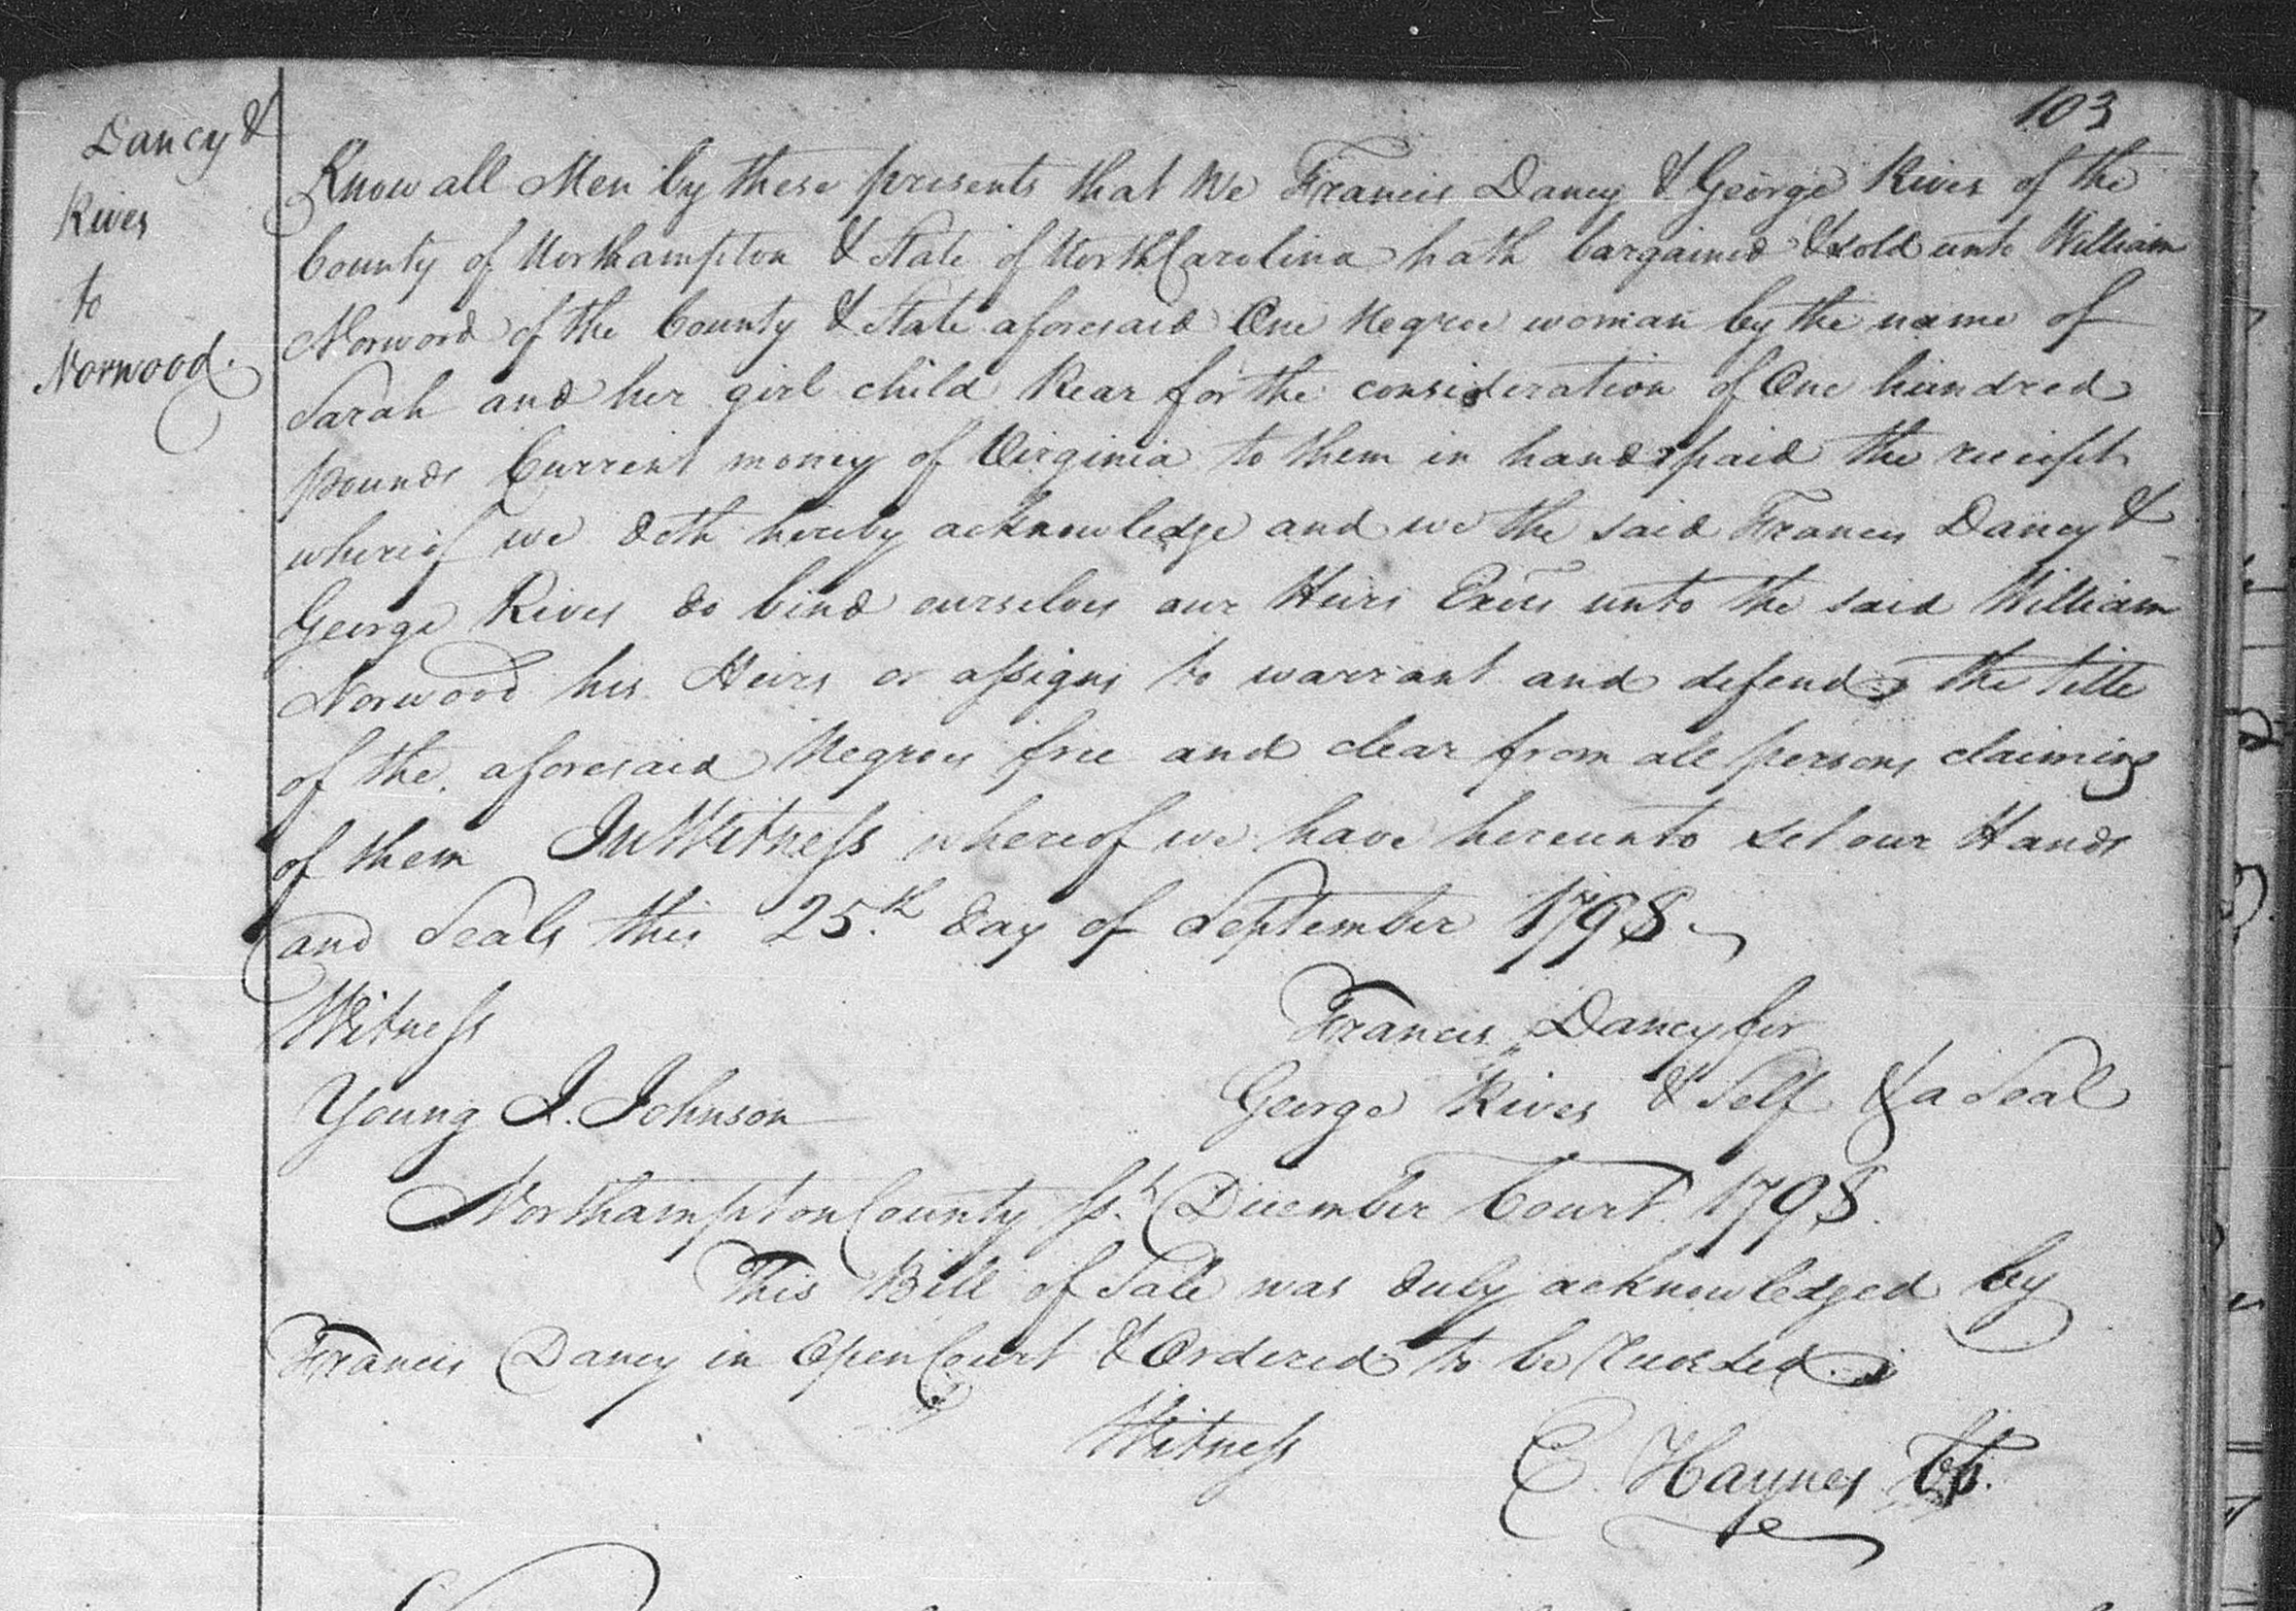 103
Dancy &
Rives
to
Norwood.
Know all Men by these presents that We Francis Dancy & George Rives of the
County of Northampton & State of North Carolina hath bargained & sold unto William
Norword of the County & State aforesaid One Negroe woman by the name of
Sarah and her girl child Rear for the consideration of One hundred
pounds Current money of Virginia to them in hand paid the receipt
whereof we doth hereby acknowledge and we the said Francis Dancy &
George Rives do bind ourselves our Heirs Exors unto the said William
Norwood his Heirs or assigns to warrant and defend the title
of the aforesaid Negroes free and clear from all persons claiming
of them In Witness whereof we have hereunto set our Hands
and Seals this 25.th day of September 1798
Witness
Francis Dancy for
Young J. Johnson
George Rives & Self & a Seal
Northampton County Ss.t December Court 1798.
This Bill of Sale was duly acknowledged by
Francis Dancy in Open Court & Ordered to be Recorded
Witness
E. Haynes CC.